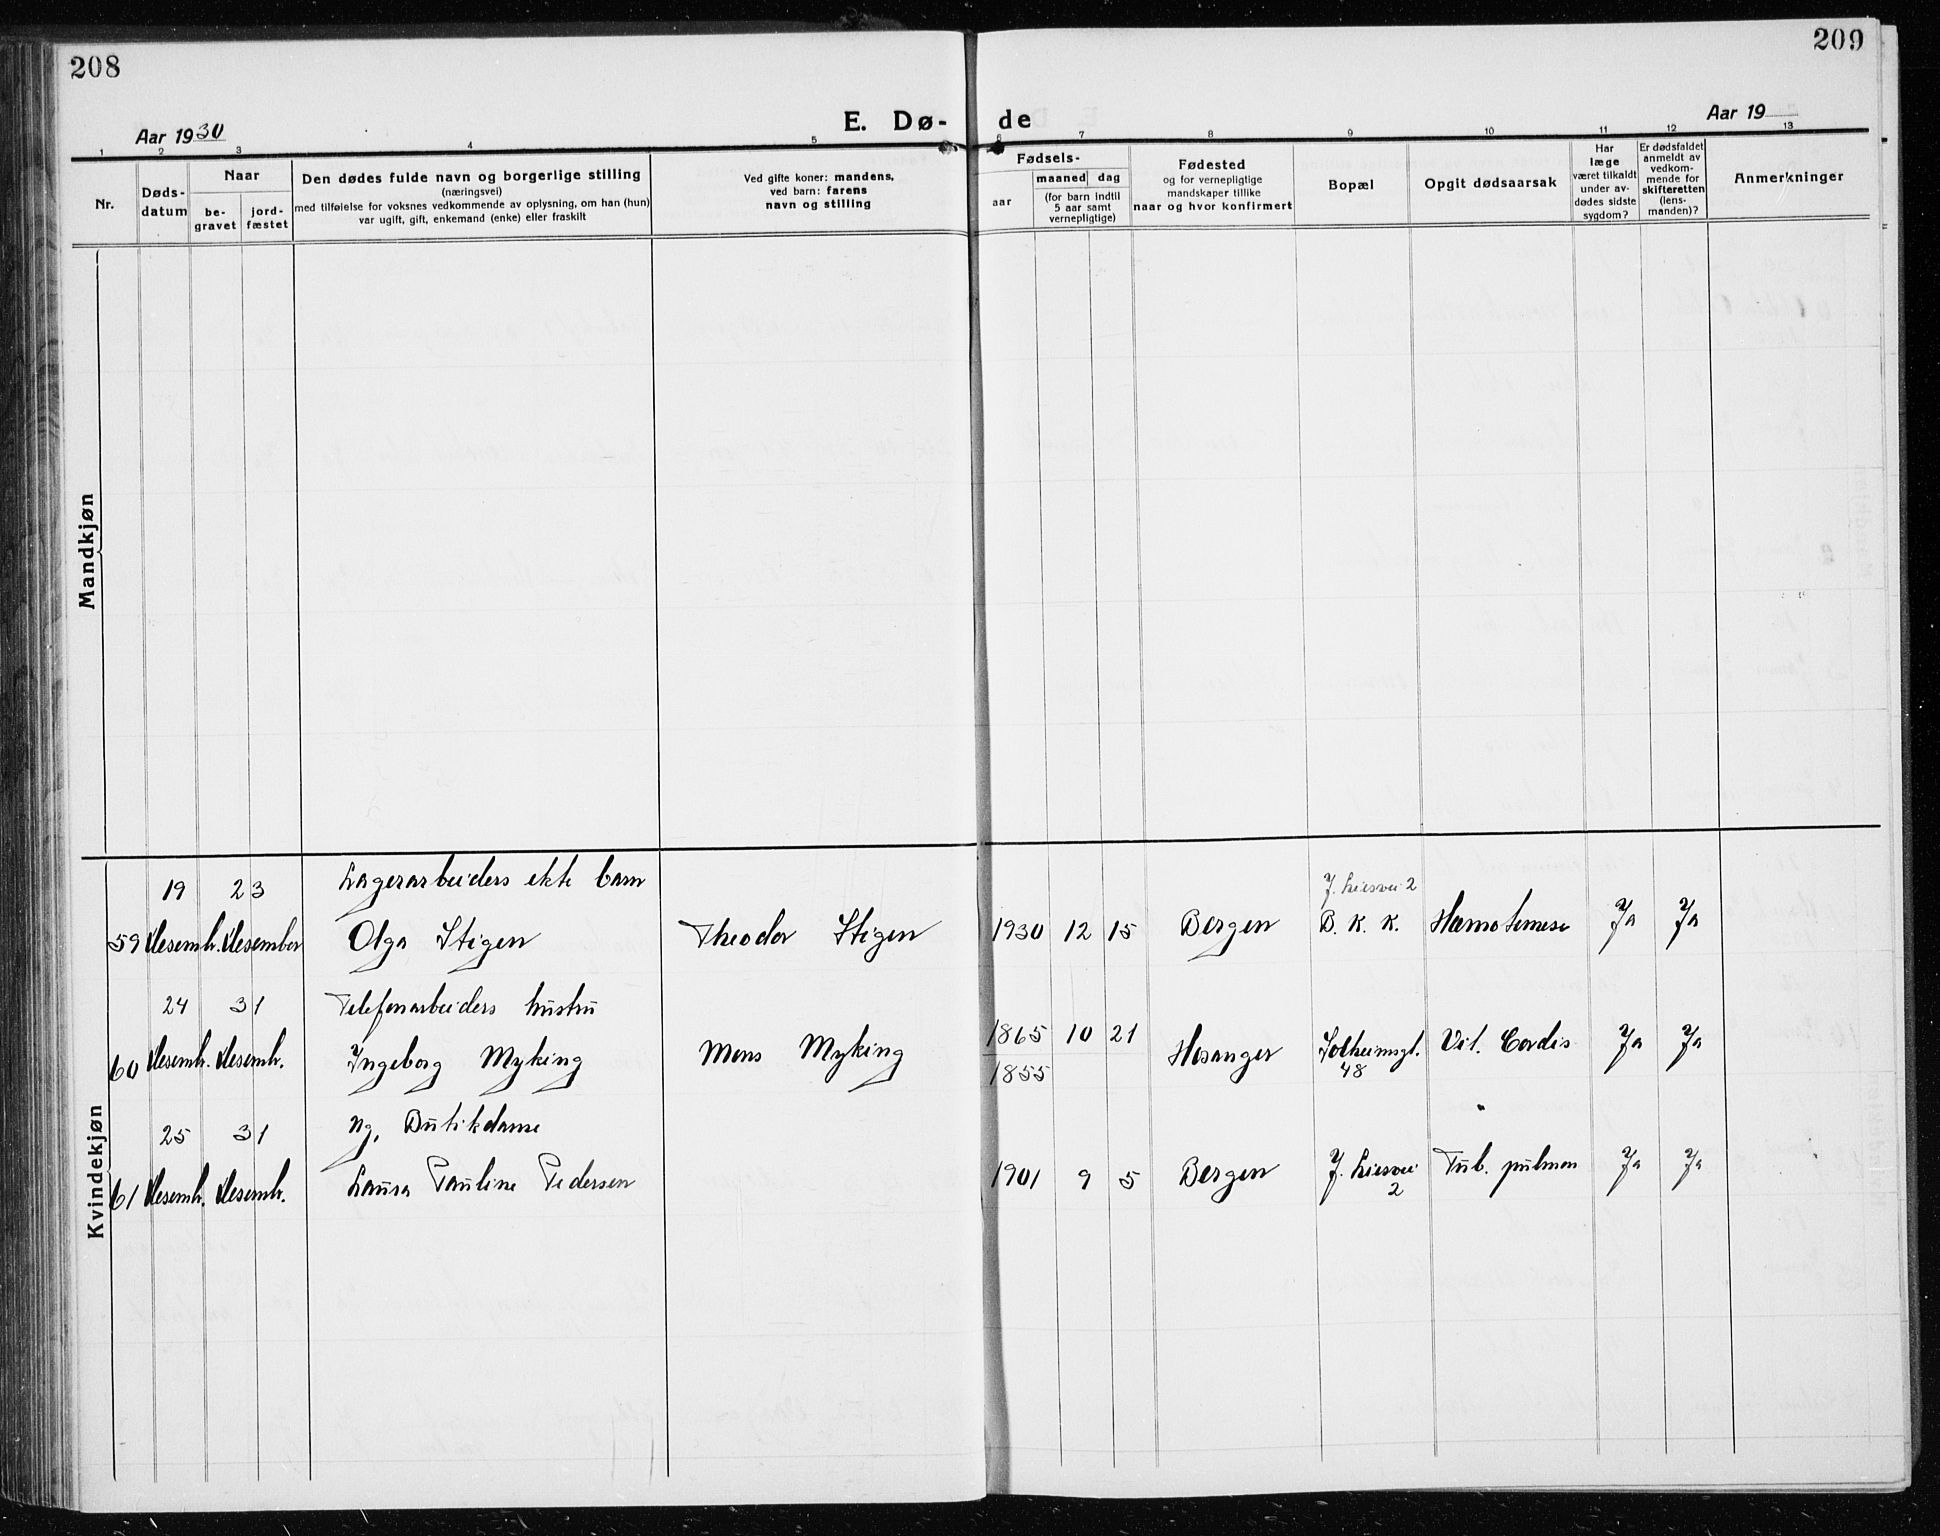 208
209
Aar 1930
E. Dø-
de
Aar 19
1
2
3
4
5
6
7
8
9
10
11
12
13
Nr.
Døds-
datum
Naar
be-
gravet
jord-
fæstet
Den dødes fulde navn og borgerlige stilling
(næringsvei)
med tilføielse for voksnes vedkommende av oplysning, om han (hun)
var ugift, gift, enkemand (enke) eller fraskilt
Ved gifte koner: mandens,
ved barn: farens
navn og stilling
Fødsels-
aar
maaned
dag
(for barn indtil
5 aar samt
vernepligtige)
Fødested
og for vernepligtige
mandskaper tillike
naar og hvor konfirmert
Bopæl
Opgit dødsaarsak
Har
læge
været tilkaldt
under av-
dødes sidste
sygdom?
Er dødsfaldet
anmeldt av
vedkom-
mende for
skifteretten
(lens-
manden)?
Anmerkninger
Mandkjøn
Kvindekjøn
19 23 Lagerarbeiders ekte barn J. Liesvei 2
59 desembr. desember Olga Stigen Theodor Stigen 1930 12 15 Bergen B. K. K. Hæmotemese Ja Ja
24 31 Telefonarbeiders hustru
60 desembr. desembr. Ingeborg Myking Mons Myking 1865 10 21 Hosanger Solheimsgt. Vit. Cordis Ja Ja
1855 48
25 31 ug. Butikdame
61 desembr. desembr. Laura Pauline Pedersen 1901 9 5 Bergen J. Liesvei Tub. pulmon Ja Ja
2